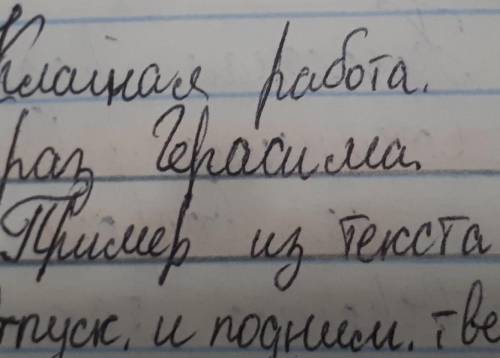 Клаcная работа.
раз Герасима.
Пример из текста
тпуск. и подним. тве